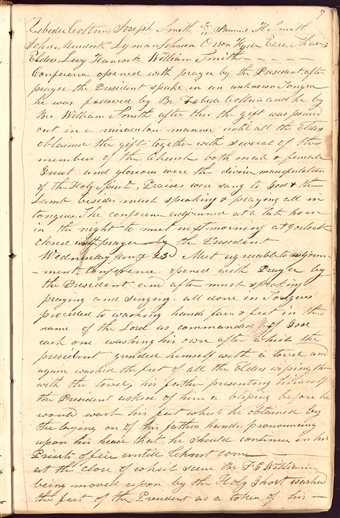 7
Zebedee Coltrin Joseph Smith Sr Samuel H. Smith
John Murdock Lyman Johnson Orson Hyde Ezra Thayer
Elders Levy Hancock William Smith
Conference opened with prayer by the President after
prayer the President spake in an unknown Tongue
he was followed by Br Zebedee Coltrin and he by
Bro William Smith after this the gift was poured
out in a miraculous manner until all the Elders
obtained the gift together with several of the
members of the Church both male & female
Great and glorious were the divine manifestation
of the Holy Spirit Praises were sang to God & the
Lamb besides much speaking & praying all in
tongues. The conference adjourned at a late hour
in the night to meet next morning at 9 oclock
closed with prayer by the President
Wednesday 23d Meet agreeable to adjourn-
ment. conference opened with Prayer by
the President and after much speaking
praying and singing. all done in Tongues
proceded to washing hands faces & feet in the
name of the Lord as commanded of God
each one washing his own after which the
president girded himself with a towel and
again washed the feet of all the Elders wiping them
with the towel, his father presenting himself
the President asked of him a blessing before he
would wash his feet which he obtained by
the laying on of his father hands, pronouncing
upon his head that he should continue in his
Priests office untill Christ come
at the close of which scene Br F G Williams
being moved upon by the Holy Ghost washed
the feet of the President as a token of his